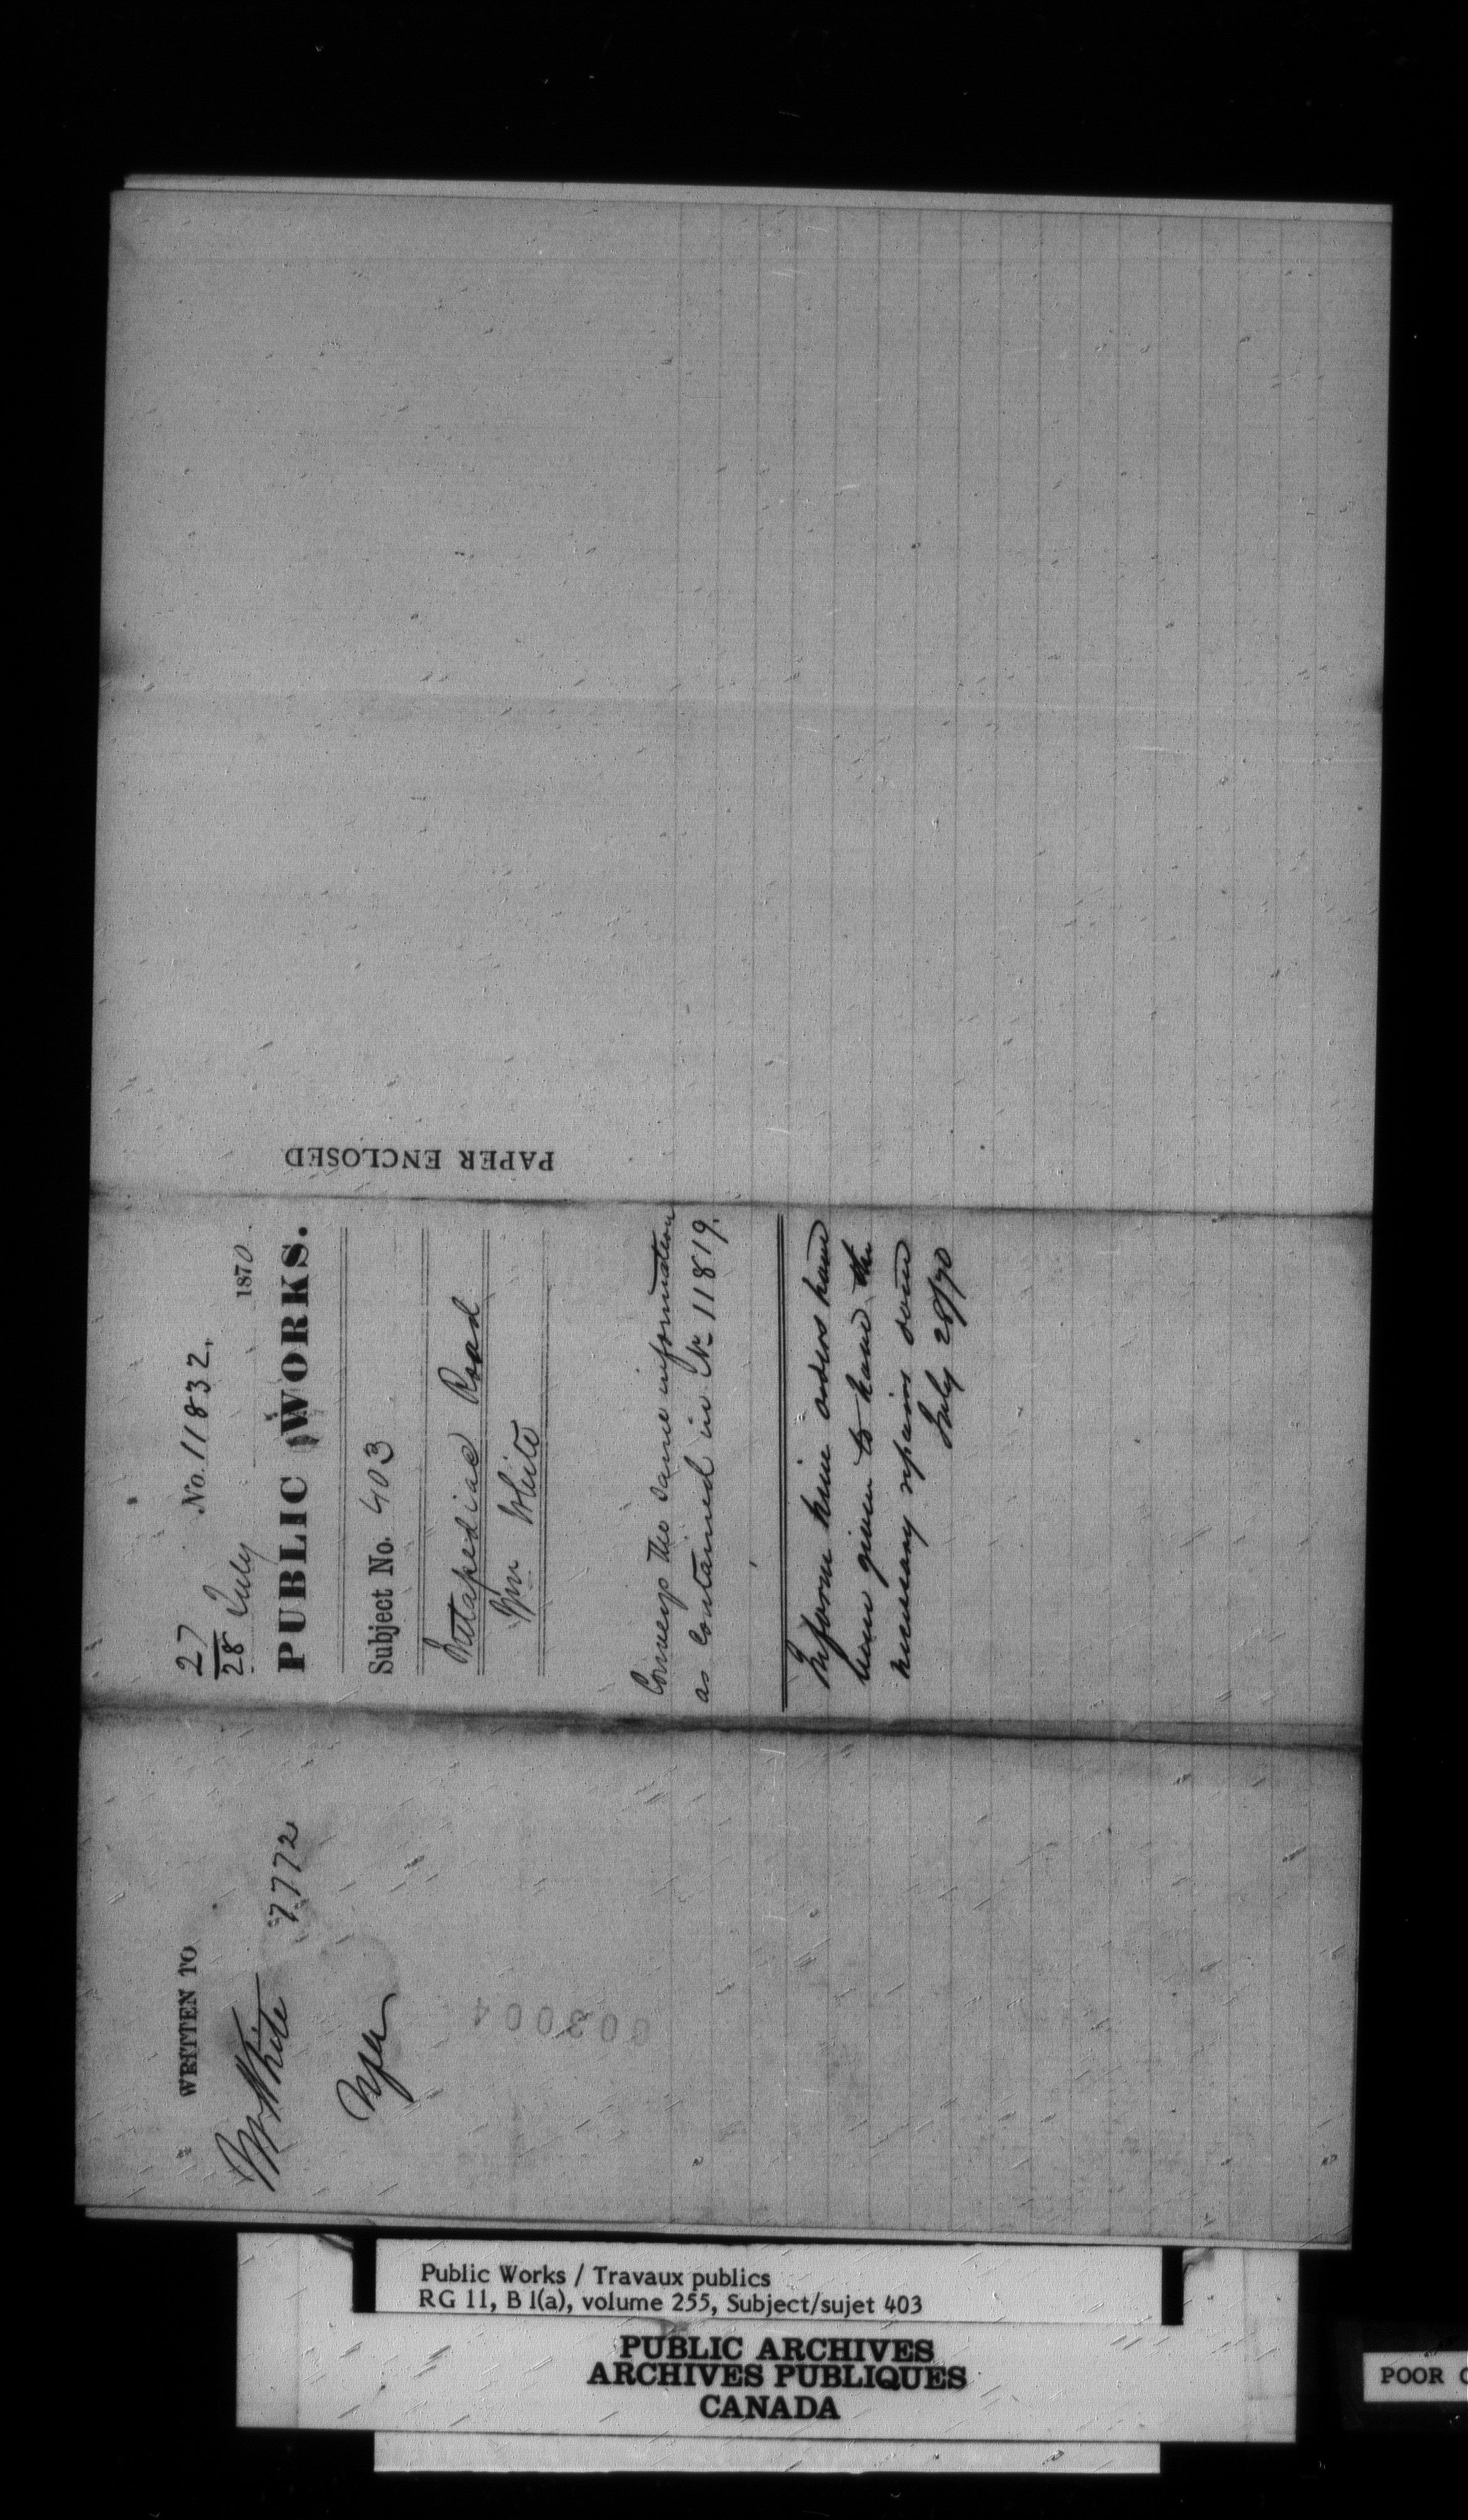 27
28 July
No. 11832,
1870.
PUBLIC WORKS.
Subject No. 403
Metapediac Road
Wm White
Conveys the same information
as contained in No 11819.
Inform him orders have
been given to have the
necessary repairs done
July 28/70
PAPER ENCLOSED
WRITTEN TO
Wm White 7772
003004
Public Works / Travaux publics
RG 11, B 1(a), volume 255, Subject/sujet 403
PUBLIC ARCHIVES
ARCHIVES PUBLIQUES
CANADA
POOR